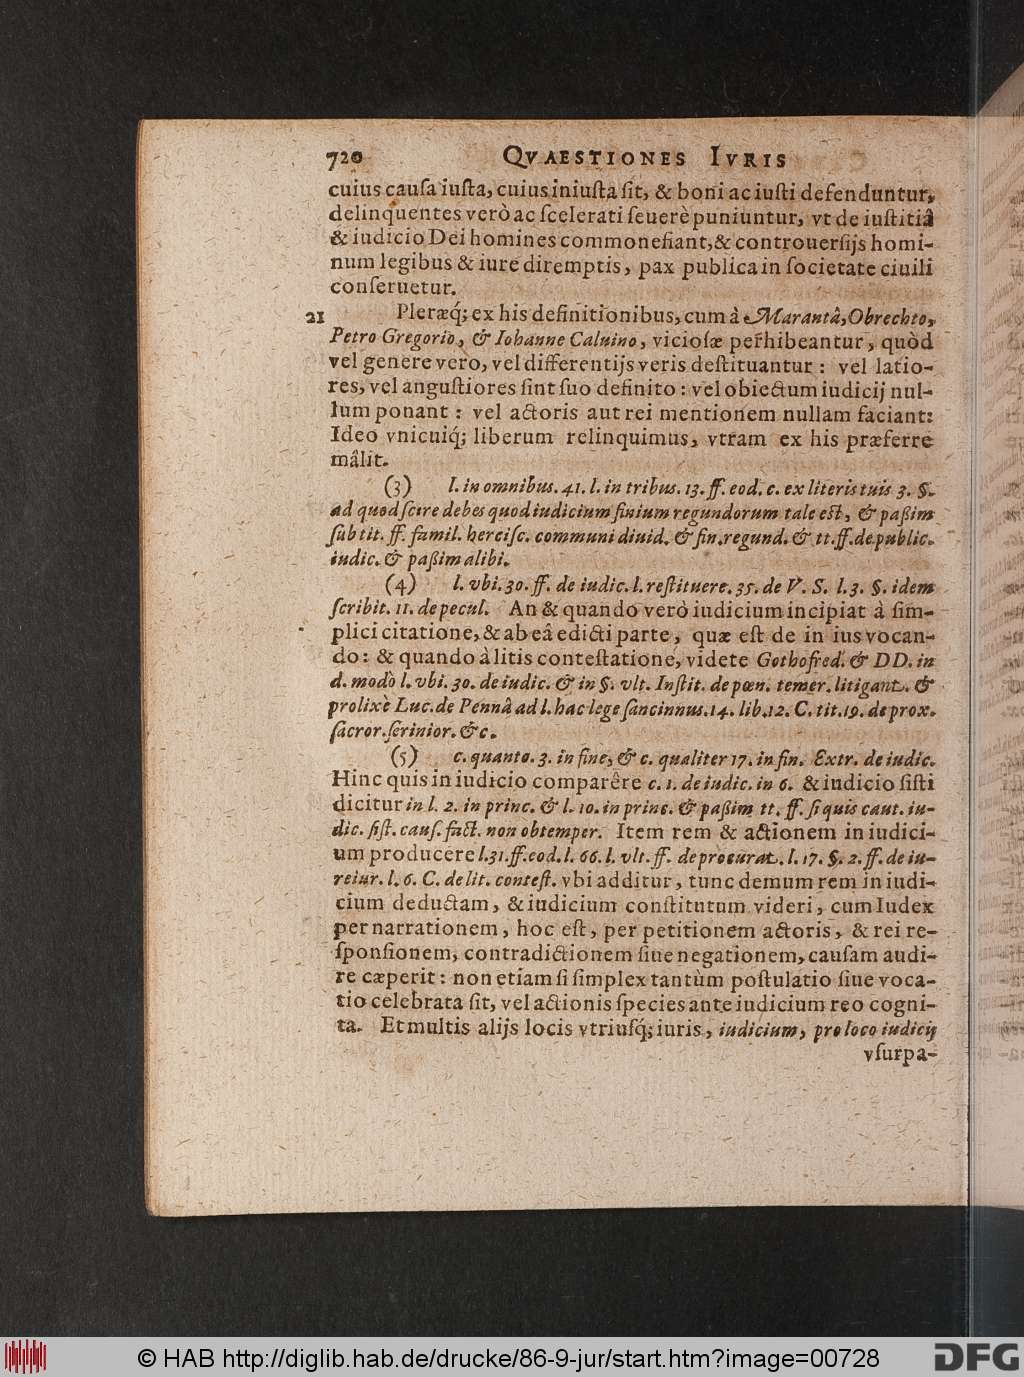 720 QVAESTIONES IVRIS
cuius cauſa iuſta, cuius iniuſta ſit, & boni ac iuſti defenduntur,
delinquentes verò ac ſcelerati ſeuerè puniuntur, vt de iuſtitiâ
& iudicio Dei homines commonefiant, & controuerſijs homi-
num legibus & iure diremptis, pax publica in ſocietate ciuili
conſeruetur.
21 Pleræq́; ex his definitionibus, cum à Marantâ, Obrechto,
Petro Gregorio, & Iohanne Caluino, vicioſæ perhibeantur, quòd
vel genere vero, vel differentijs veris deſtituantur : vel latio-
res, vel anguſtiores ſint ſuo definito : vel obiectum iudicij nul-
lum ponant : vel actoris aut rei mentionem nullam faciant:
Ideo vnicuiq́; liberum relinquimus, vtram ex his præferre
mâlit.
(3) l. in omnibus. 41. l. in tribus. 13. ff. eod. c. ex literis tuis 3. §.
ad quod ſcire debes quod iudicium finium regundorum tale eſt, & paßim
ſub tit. ff. famil. herciſc. communi diuid. & fin. regund. & tt. ff. de public.
iudic. & paßim alibi.
(4) l. vbi. 30. ff. de iudic. l. reſtituere. 35. de V. S. l. 3. §. idem
ſcribit. 11. de pecul. An & quando verò iudicium incipiat à ſim-
plici citatione, & ab eâ edicti parte, quæ eſt de in ius vocan-
do : & quando à litis conteſtatione, videte Gothofred. & DD. in
d. modò l. vbi. 30. de iudic. & in §. vlt. Inſtit. de pœn. temer. litigant. &
prolixè Luc. de Pennâ ad l. hac lege ſancinnus. 14. lib. 12. C. tit. 19. de prox.
ſacror. ſcrinior. & c.
(5) c. quanto. 3. in fine, & c. qualiter 17. in fin. Extr. de iudic.
Hinc quis in iudicio comparêre c. 1. de iudic. in 6. & iudicio ſiſti
dicitur in l. 2. in princ. & l. 10. in princ. & paßim tt. ff. ſi quis caut. iu-
dic. ſiſt. cauſ. fact. non obtemper. Item rem & actionem in iudici-
um producere l. 31. ff. eod. l. 66. l. vlt. ff. de procurat. l. 17. §. 2. ff. de iu-
reiur. l. 6. C. de lit. conteſt. vbi additur, tunc demum rem in iudi-
cium deductam, & iudicium conſtitutum videri, cum Iudex
per narrationem, hoc eſt, per petitionem actoris, & rei re-
ſponſionem, contradictionem ſiue negationem, cauſam audi-
re cæperit : non etiam ſi ſimplex tantùm poſtulatio ſiue voca-
tio celebrata ſit, vel actionis ſpecies ante iudicium reo cogni-
ta. Et multis alijs locis vtriuſq́; iuris, iudicium, pro loco iudicij
vſurpa-
© HAB http://diglib.hab.de/drucke/86-9-jur/start.htm?image=00728
DFG